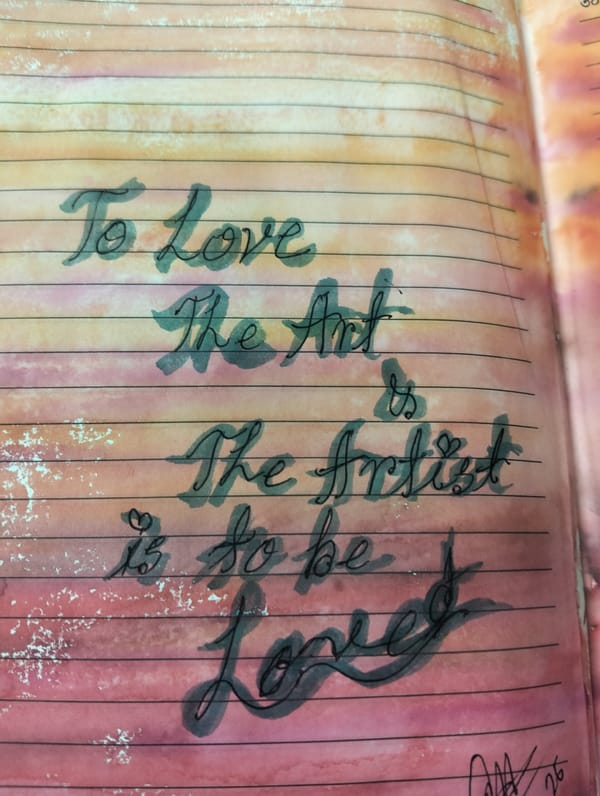 To Love
The Art
&
The Artist
is to be
Loved
26